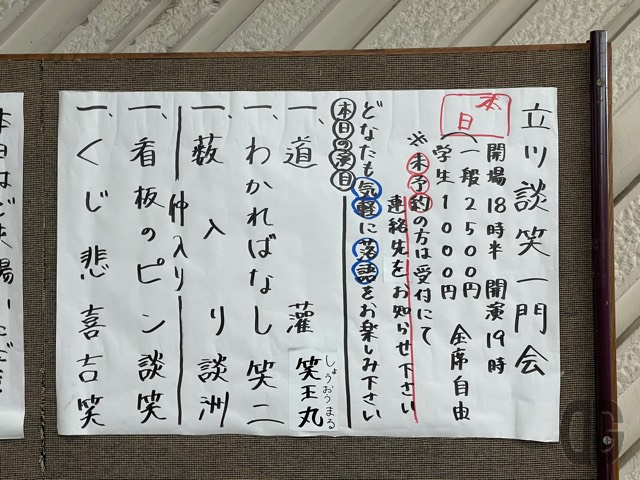 立川談笑一門会
本日
開場18時半 開演19時
(一般2500円
学生1000円 全席自由
※未予約の方は受付にて
連絡先をお知らせ下さい
どなたも気軽に落語をお楽しみ下さい
本日の演目
一、道灌 笑王丸
しょうおうまる
一、わかればなし 笑二
一、藪入り 談洲
仲入り
一、看板のピン 談笑
一、くじ悲喜 吉笑